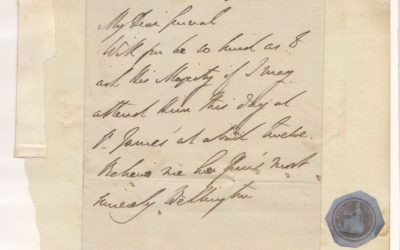 My Dear General
Will you be so kind as to
ask His Majesty if I may
attend Him this day at
St. James' at about twelve.
Believe me Yours most
sincerely Wellington